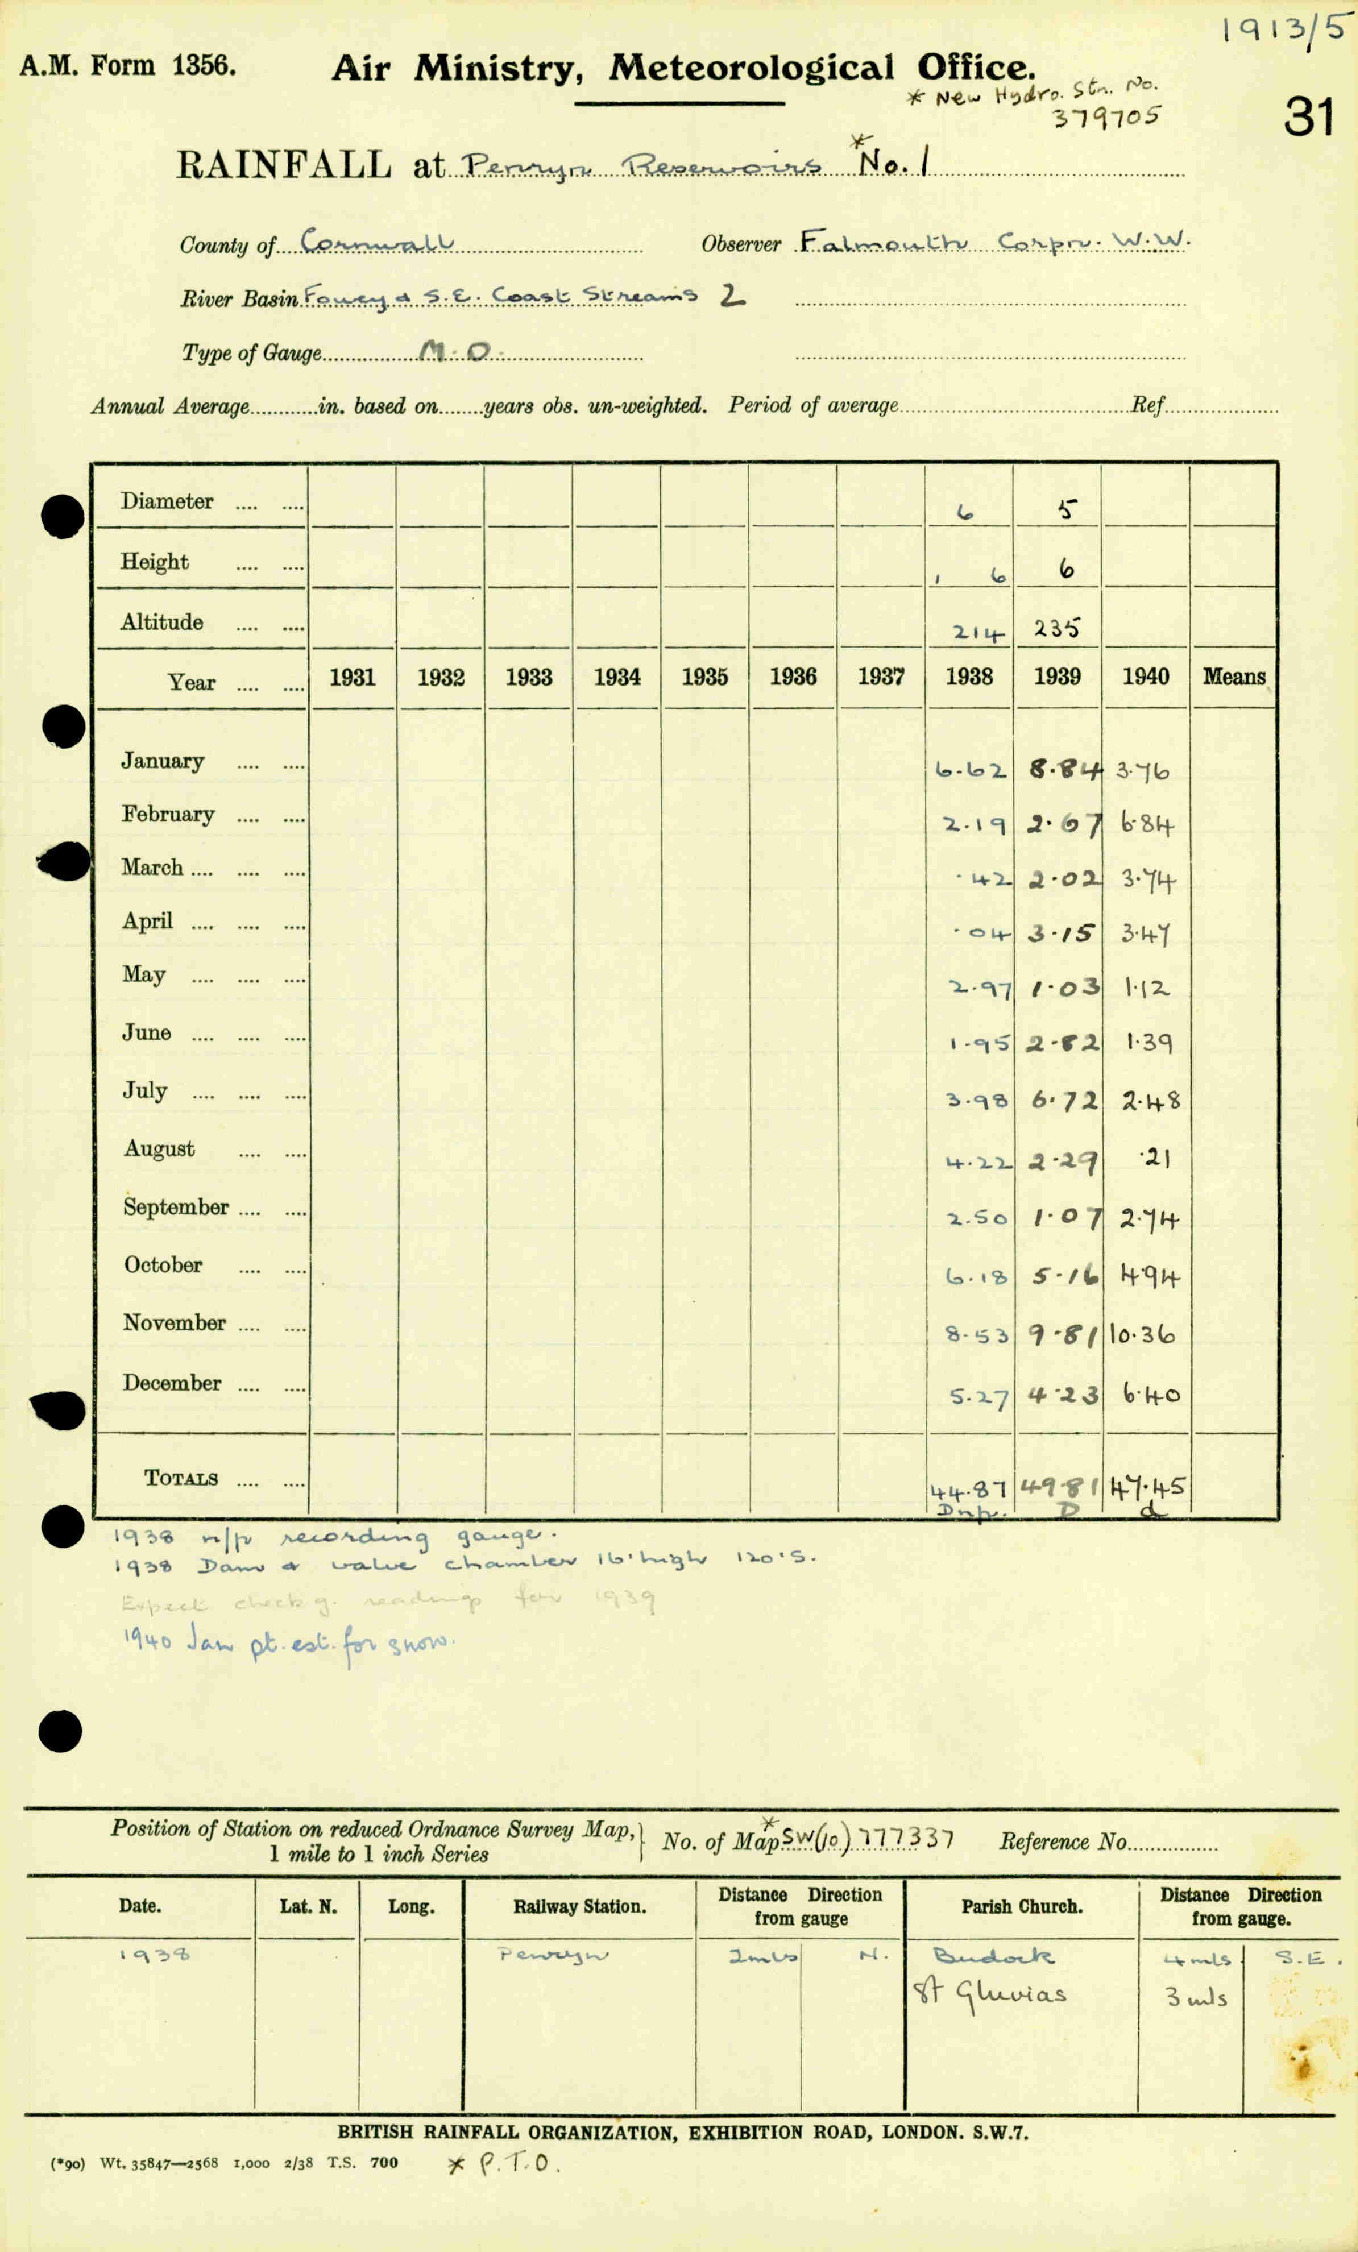 1913/5
A.M. Form 1356. Air Ministry, Meteorological Office.
* New Hydro. Stn. No.
379705
31
RAINFALL at Penryn Reservoirs *No. 1
County of Cornwall Observer Falmouth Corpn. W.W.
River Basin Fowey & S.E. Coast Streams 2
Type of Gauge M.O.
Annual Average in. based on years obs. un-weighted. Period of average Ref
Diameter 6 5
Height 1 6 6
Altitude 214 235
Year 1931 1932 1933 1934 1935 1936 1937 1938 1939 1940 Means
January 6.62 8.84 3.76
February 2.19 2.67 6.84
March .42 2.02 3.74
April .04 3.15 3.47
May 2.97 1.03 1.12
June 1.95 2.82 1.39
July 3.98 6.72 2.48
August 4.22 2.29 .21
September 2.50 1.07 2.74
October 6.18 5.16 4.94
November 8.53 9.81 10.36
December 5.27 4.23 6.40
TOTALS 44.87 49.81 47.45
Dnp. D d
1938 n/p recording gauge.
1938 Dam & valve chamber 16' high 120' S.
Expect check g. readings for 1939
1940 Jan pt. est. for snow.
Position of Station on reduced Ordnance Survey Map, } No. of Map *SW(10) 777337 Reference No.
1 mile to 1 inch Series
Date. Lat. N. Long. Railway Station. Distance Direction from gauge Parish Church. Distance Direction from gauge.
1938 Penryn 2 mls N. Budock 4 mls S.E.
St Gluvias 3 mls
BRITISH RAINFALL ORGANIZATION, EXHIBITION ROAD, LONDON. S.W.7.
(*90) Wt. 35847—2568 1,000 2/38 T.S. 700 * P.T.O.